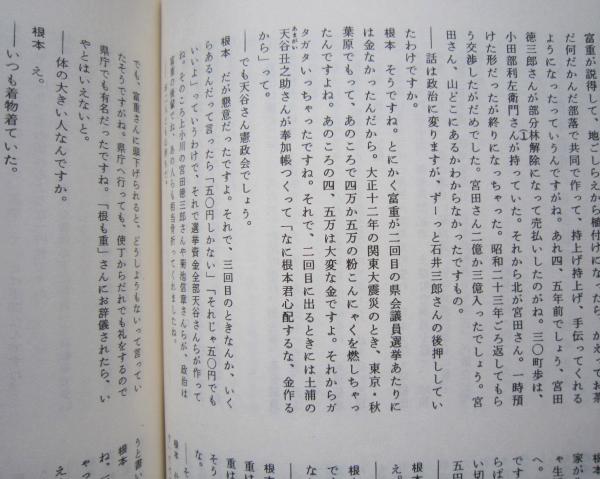 富重が説得して、地ごしらえから植付けになったら、かえってお茶
だ何だかんだ部落で共同で作って、持上げ持上げ、手伝ってくれる
ようになったっていうんですがね。あれ四、五年前でしょう、宮田
徳三郎さんが部分林解除になって売払いしたのがね。三〇町歩は、
小田部利左衛門さんが持っていた。それから北が宮田さん。一時預
(1)
けた形だったが終りになっちゃった。昭和二十三年ごろ返してもら
う交渉したがだめでした。宮田さん二億か三億入ったでしょう。宮
田さん、山どこにあるかわからなかったですもの。
――話は政治に変りますが、ずーっと石井三郎さんの後押ししてい
たわけですか。
根本 そうですね。とにかく富重が二回目の県会議員選挙あたりに
は金なかったんだから。大正十二年の関東大震災のとき、東京・秋
葉原でもって、あのころで四万か五万の粉こんにゃくを燃しちゃっ
たんですよね。あのころの四、五万は大変な金ですよ。それからガ
タガタいっちゃったですね。それで、二回目に出るときには土浦の
天谷丑之助さんが奉加帳つくって「なに根本君心配するな、金作る
あまがい
から」って。
――でも天谷さん憲政会でしょう。
根本 だが懇意だったんですよ。それで、三回目のときなんか、いく
らあるんだって言ったら「五〇円しかない」「それじゃ五〇円でも
いいよ」っていうわけで、それで選挙資金全部天谷さんたちが作って
ね。そのころ上小川の宮田徳三郎さんや菊池信章さんらが、政治は
でも、富重さんに頭下げられると、どうしようもないって言ってい
たそうですがね。県庁へ行っても、使丁からだれでも礼をするので
県庁でも有名だったですね。「根も重」さんにお辞儀されたら、い
やとはいえないと。
――体の大きい人なんですか。
根本 え。
――いつも着物着ていた。